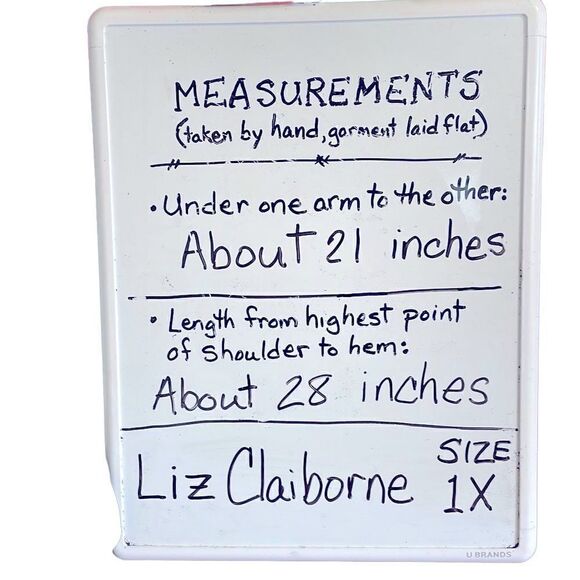 MEASUREMENTS
(taken by hand, garment laid flat)
• Under one arm to the other:
About 21 inches
• Length from highest point
of shoulder to hem:
About 28 inches
Liz Claiborne SIZE
1X
U BRANDS